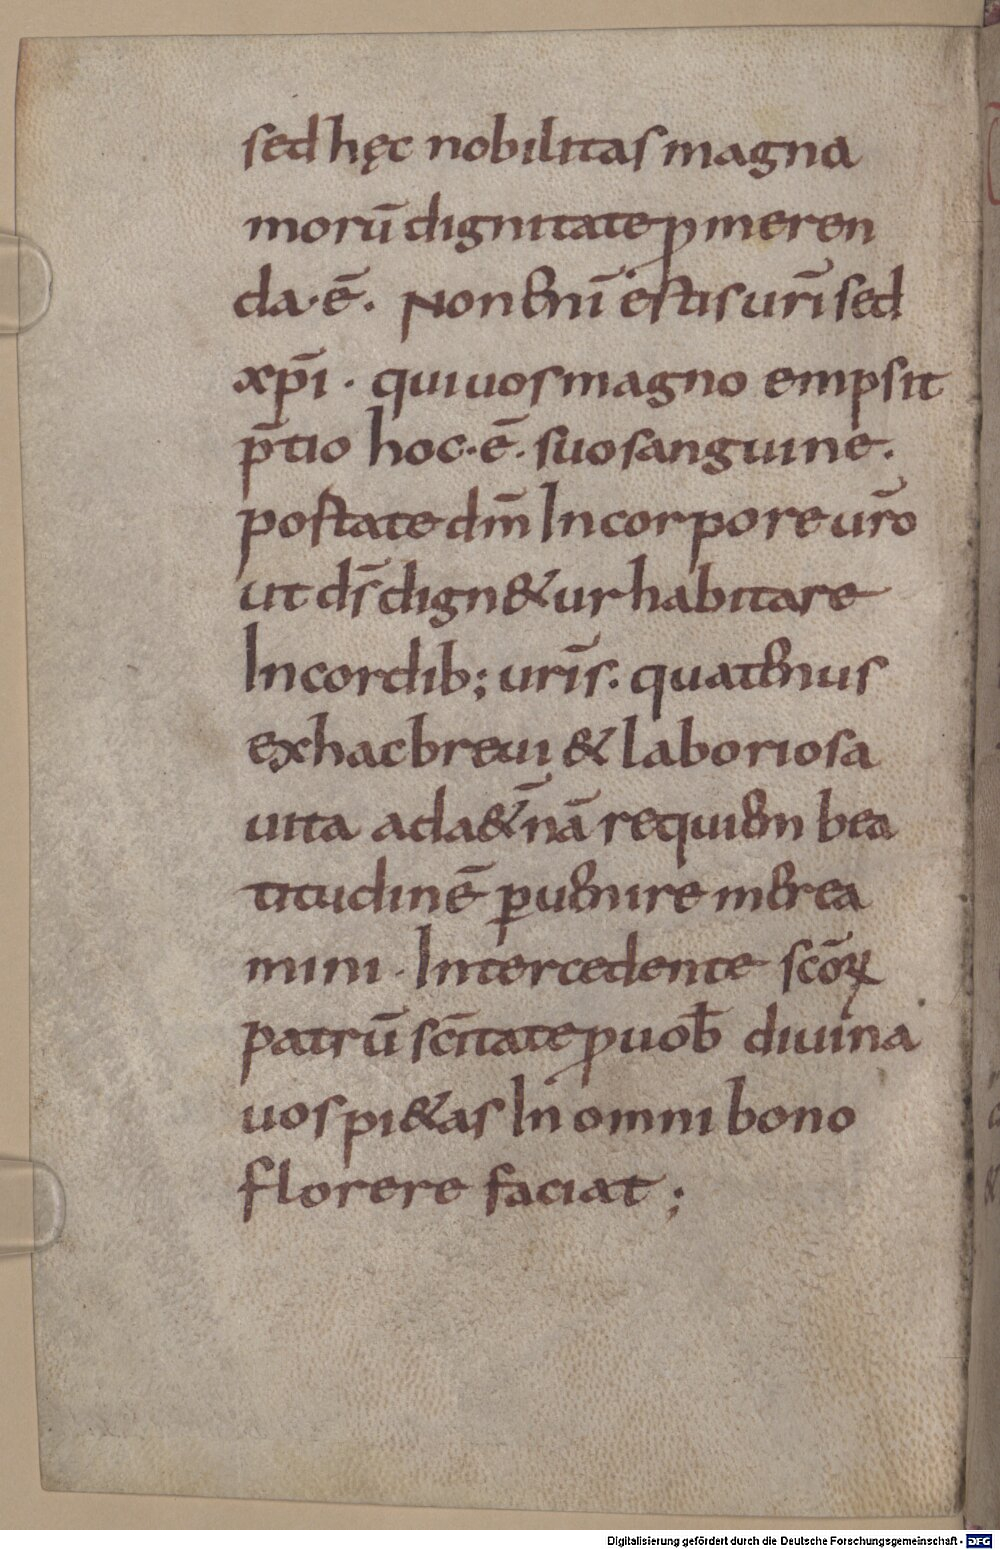 sed hęc nobilitas magna
morū dignitate ꝑmeren
da·ē. Non enī estis urī sed
xp̄i · qui uos magno empsit
p̄tio hoc·ē· suo sanguine.
postate dm̄ In corpore ur̄o
ut dī dign&ur habitare
In cordib; urīs. quatenus
ex hac breui & laboriosa
uita ad a&̄nā requiem bea
titudinē ꝑuenire merea
mini · Intercedente scō⁊ꝝ
patrū scītate ꝓ uob̄ diuina
uos pi&as In omni bono
florere faciat ;
Digitalisierung gefördert durch die Deutsche Forschungsgemeinschaft - DFG